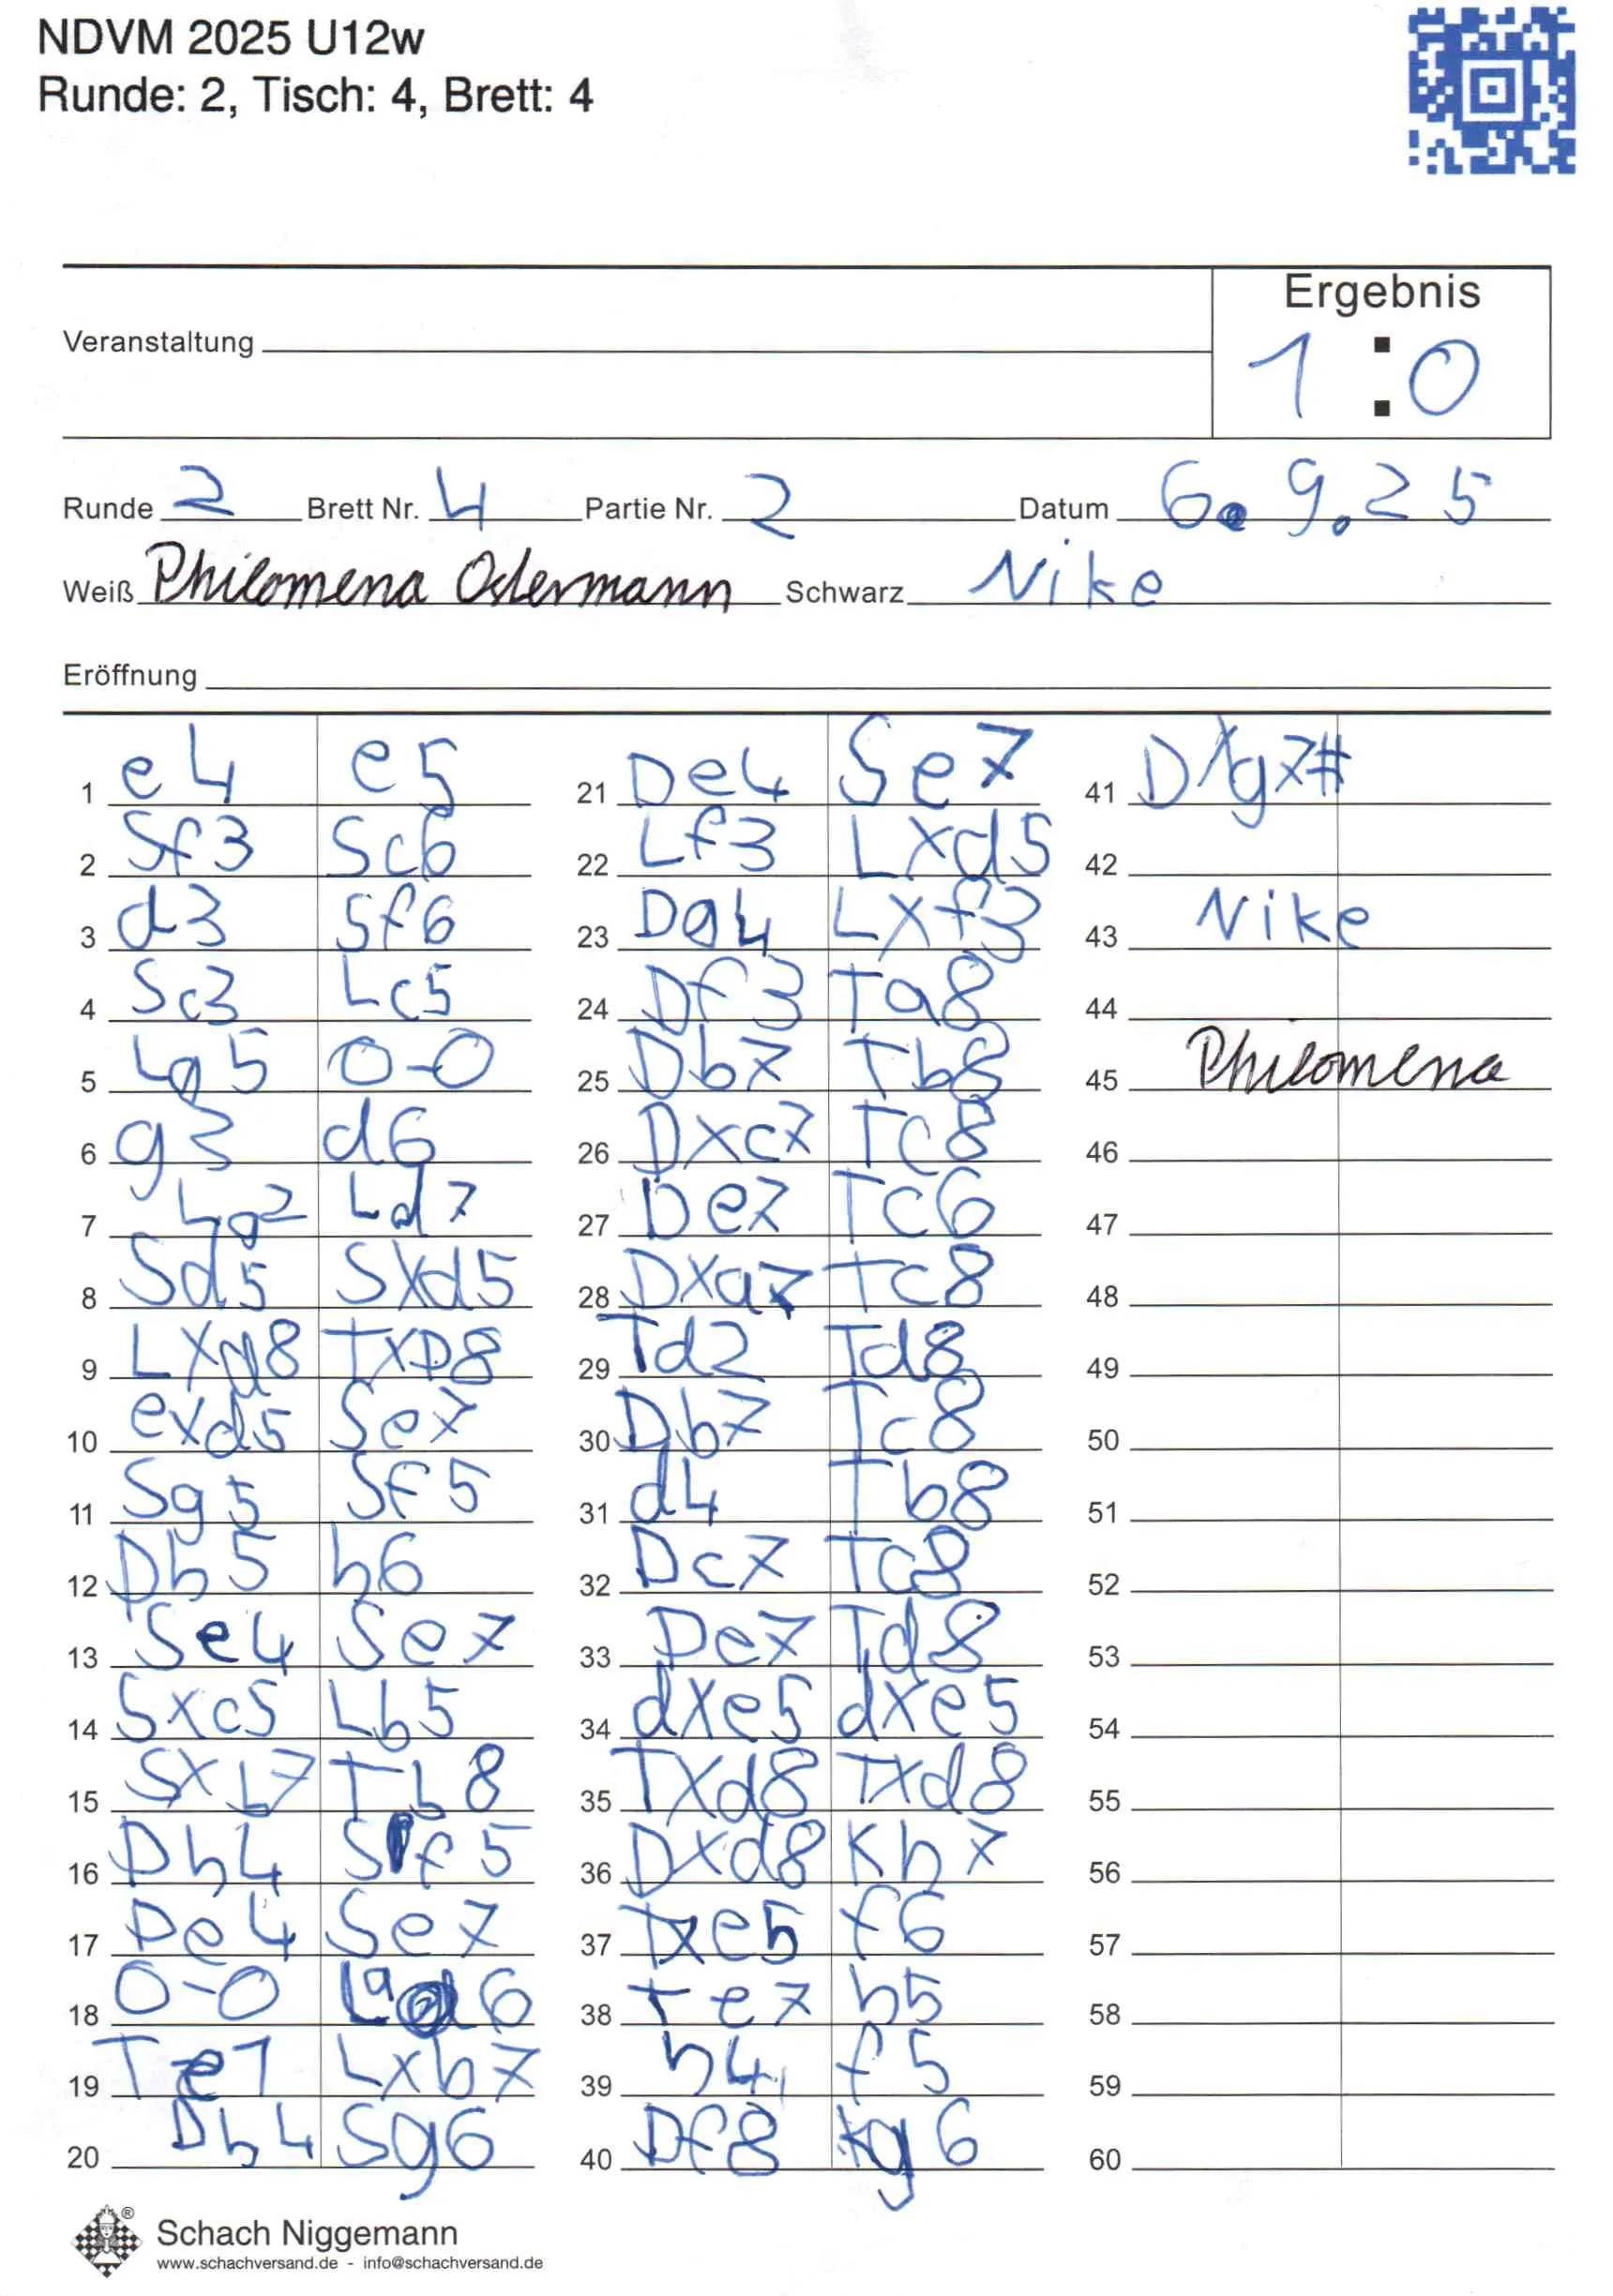 NDVM 2025 U12w
Runde: 2, Tisch: 4, Brett: 4
Ergebnis
Veranstaltung
1 : 0
Runde 2 Brett Nr. 4 Partie Nr. 2 Datum 6. 9. 25
Weiß Philomena Odermann Schwarz Nike
Eröffnung
1 e4 e5 21 De4 Se7 41 DXg7#
2 Sf3 Sc6 22 Lf3 LXd5 42
3 d3 Sf6 23 Dg4 LXf3 43 Nike
4 Sc3 Lc5 24 Df3 Ta8 44
5 Lg5 0-0 25 Db7 Tb8 45 Philomena
6 g3 d6 26 Dxc7 Tc8 46
7 Lg2 Ld7 27 De7 Tc6 47
8 Sd5 SXd5 28 DXa7 Tc8 48
9 LXd8 TXD8 29 Td2 Td8 49
10 exd5 Se7 30 Db7 Tc8 50
11 Sg5 Sf5 31 d4 Tb8 51
12 Dh5 h6 32 Dc7 Tc8 52
13 Se4 Se7 33 De7 Td8 53
14 Sxc5 Lb5 34 dXe5 dxe5 54
15 Sxb7 Tb8 35 TXd8 TXd8 55
16 Dh4 Sf5 36 DXd8 Kh7 56
17 De4 Se7 37 Txe5 f6 57
18 0-0 La6 38 Te7 h5 58
19 Te1 Lxb7 39 h4 f5 59
20 Dh4 Sg6 40 Df8 Kg6 60
® Schach Niggemann
www.schachversand.de - info@schachversand.de